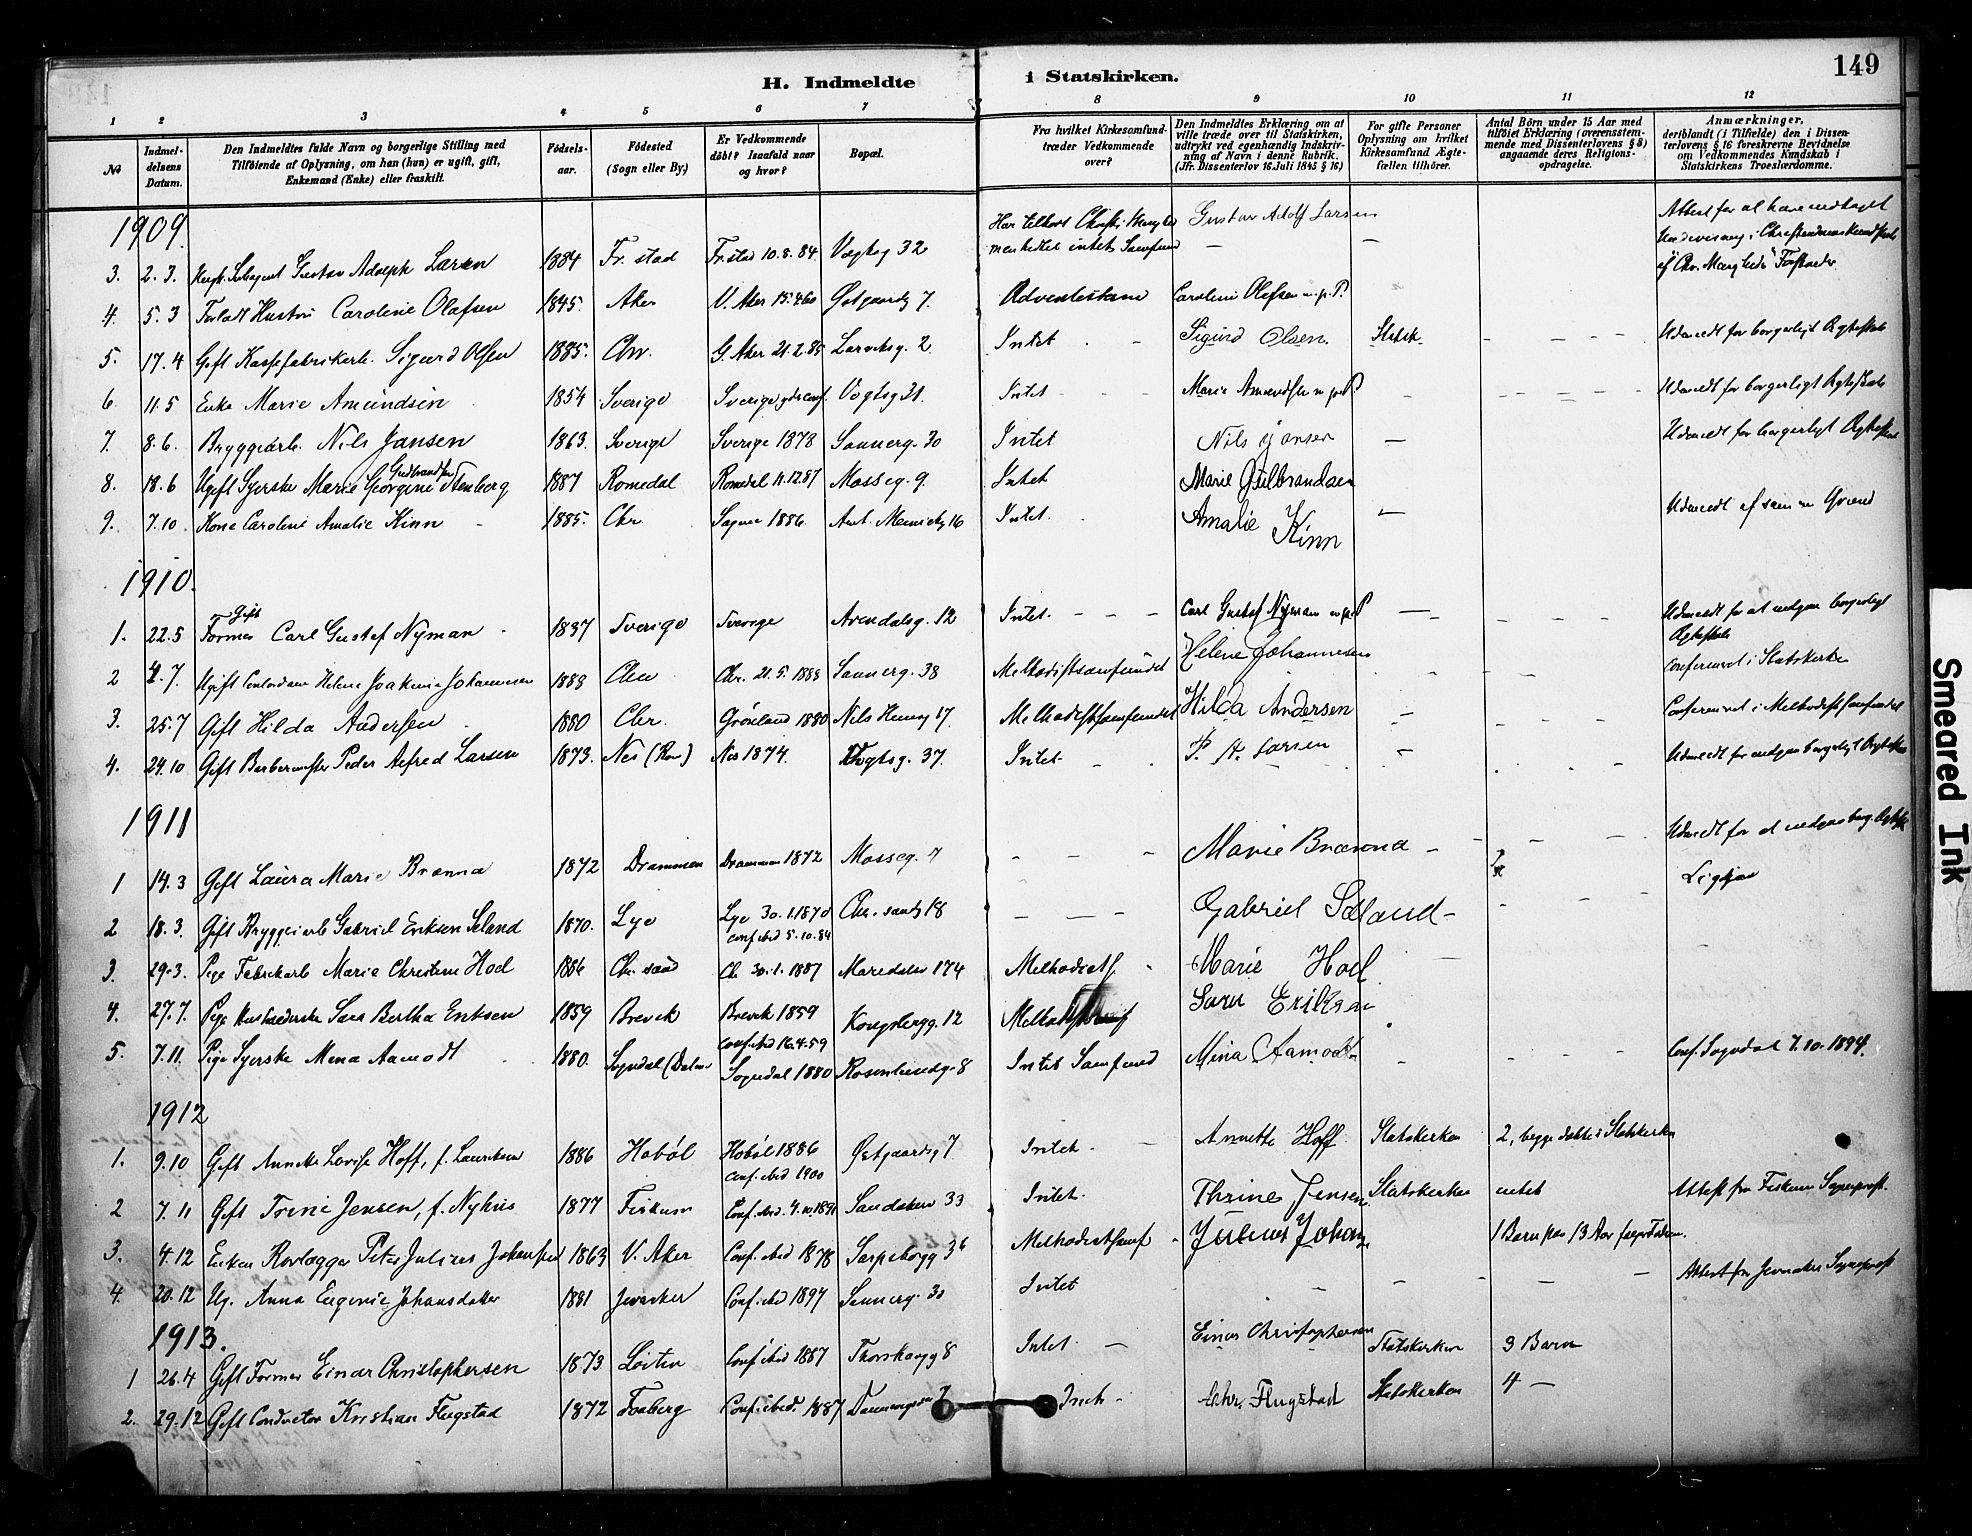 149
H. Indmeldte i Statskirken.
1 2 3 4 5 6 7 8 9 10 11 12
№
Indmeldelsens Datum.
Den Indmeldtes fulde Navn og borgerlige Stilling med Tilföiende af Oplysning, om han (hun) er ugift, gift, Enkemand (Enke) eller fraskilt.
Födselsaar.
Födested (Sogn eller By.)
Er Vedkommende döbt? Isaafald naar og hvor?
Bopæl.
Fra hvilket Kirkesamfund træder Vedkommende over?
Den Indmeldtes Erklæring om at ville træde over til Statskirken, udtrykt ved egenhændig Indskrivning af Navn i denne Rubrik. (Jfr. Dissenterlov 16. Juli 1845 § 16)
For gifte Personer Oplysning om hvilket Kirkesamfund Ægtefællen tilhörer.
Antal Börn under 15 Aar med tilföiet Erklæring (overensstemmende med Dissenterlovens § 8) angaaende deres Religionsopdragelse.
Anmærkninger, deriblandt (i Tilfælde) den i Dissenterlovens § 16 foreskrevne Bevidnelse om Vedkommendes Kundskab i Statskirkens Troeslærdomme.
1909.
3. 2.3. Gustav Adolph Larsen 1884 Fr.stad Fr.stad 10.8.84 Vogtsg 32 intet Samfund Gustav Adolf Larsen — Attest for at have modtaget Undervisning i Christendomskundskab
4. 5.3 Caroline Olafsen 1845. Aker V. Aker Østgaardsg 7. Caroline Olefsen m.p.P.
5. 17.4 Gift Sigurd Olsen 1885. Chr. G. Aker 21.2.85 Larviksg. 2. Intet Sigurd Olsen. Statsk. Udmeldt for borgerligt Ægteskab
6 11.5 Enke Marie Amundsen 1854 Sverige Sverige Vogtsg 31. Intet Marie Amundsen m.p.P. Udmeldt for borgerligt Ægteskab
7. 8.6. Bryggiarb. Nils Jansen 1863. Sverige Sverige 1878 Sannerg. 30 Intet Nils Jansen — Udmeldt for borgerligt Ægteskab
8. 18.6 Ugift Syerske Marie Georgine Gudbrandsen Stenberg 1887 Romedal Romedal 11.12.87 Mosseg. 9. Intet Marie Gulbrandsen
9. 7.10. Kone Caroline Amalie Kinn 1885. Chr. Sagene 1886. 16 Intet. Amalie Kinn — Udmeldt af samme Grund
1910.
1. 22.5 Gift Former Carl Gustef Nyman 1837 Sverige Sverige Arendalsg. 12 Intet. Carl Gustef Nyman m.p.P — Udmeldt for at indgaa borgerligt Ægteskab
2 4.7. Ugift Helene Joakime Johannesen 1888 Chr. Chr. Sannerg. 38 Methodistsamfundet Helene Johannesen Confirmeret i Statskirke
3. 25.7 Gift Hilda Andersen 1880 Chr. Grønland 1880 Nils Huusg 17. Methodistsamfundet Hilda Andersen — Confirmeret i Methodistsamfundet
4. 24.10 Gift Barbermester Peder Alfred Larsen 1873. Nes (Rom.) Nes 1874. Vogtsg. 37. Intet. P. A. Larsen — Udmeldt for indgaa borgerligt Ægteskab
1911
1 14.3 Gift Laura Marie Brænna 1872 Drammen Drammen 1872 Mosseg. 7 Marie Brænna
2 18.3. Gift Bryggiarb Gabriel Eriksen Seland 1870. Lye Lye 30.1.1870 conf. ibid 5.10.84 Chr.sandg 18 Gabriel Sæland
3. 29.3. Pige Fabrikarb Marie Christine Hoel 1886 Chr.sand Chr 30.1.1887 Maridalsv 174 Methodistsf. Marie Hoel
4. 27.7. Pige Husholderske Sara Bertha Eriksen 1859 Brevik Brevik 1859 conf. ibid Kongsbergg. 12 Methodistsamf Sara Eriksen
5. 7.11. Pige Syerske Mina Aamodt 1880. Sogndal (Dalane Sogndal 1880 Rosenlundg. 8 Intet Samfund Mina Aamodt Conf. Sogndal 7.10.1894.
1912
1. 9.10 Gift Annette Lovise Hoff, f. Lauritsen 1886 Hobøl Hobøl 1886 conf. ibid 1900 Østgaardsg 7 Intet. Annette Hoff Statskirken 2, begge døbte i Statskirken
2 7.11 Gift Trine Jensen, f. Nyhus 1877 Fiskum Conf. ibid. Sandakerv 33 Intet. Thrine Jensen Statskirken intet Attest fra Fiskum Sogneprest.
3. 4.12 Enkem Rørlægger Peter Julius Johansen 1863 V. Aker Conf. ibid 1878 Sarpsborgg 36 Methodistsamf Julius Johans 1 Barn paa 13 Aar
4. 20.12 Ug. Anna Eugenie Johansdatter 1881 Jevnaker Conf. ibid 1897 Sannerg. 30 Intet Attest fra Jevnaker Sogneprest
1913.
1 26.4 Gift Former Einar Christophersen 1873 Løiten Conf. ibid 1887 Thorshovg 8 Intet — Einar Christophersen Statskirken 3 Barn
2. 29.12 Gift Conductør Kristian Flugstad 1872 Faaberg Conf. ibid. 1887 Intet Chr. Flugstad Statskirken 4 —
Smeared Ink